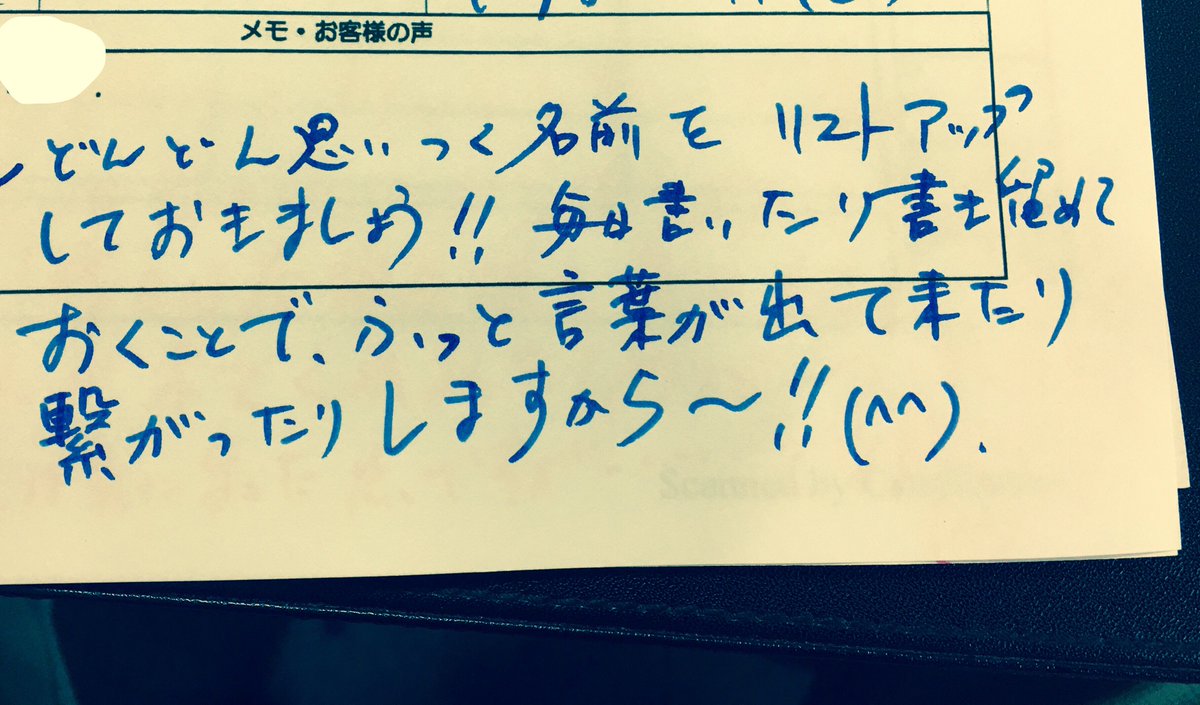 メモ・お客様の声
どんどん思いつく名前を リストアップ
しておきましょう!! 毎日書いたり書き留めて
おくことで、ふっと言葉が出て来たり
繋がったりしますから〜!!(^^).
Scanned by